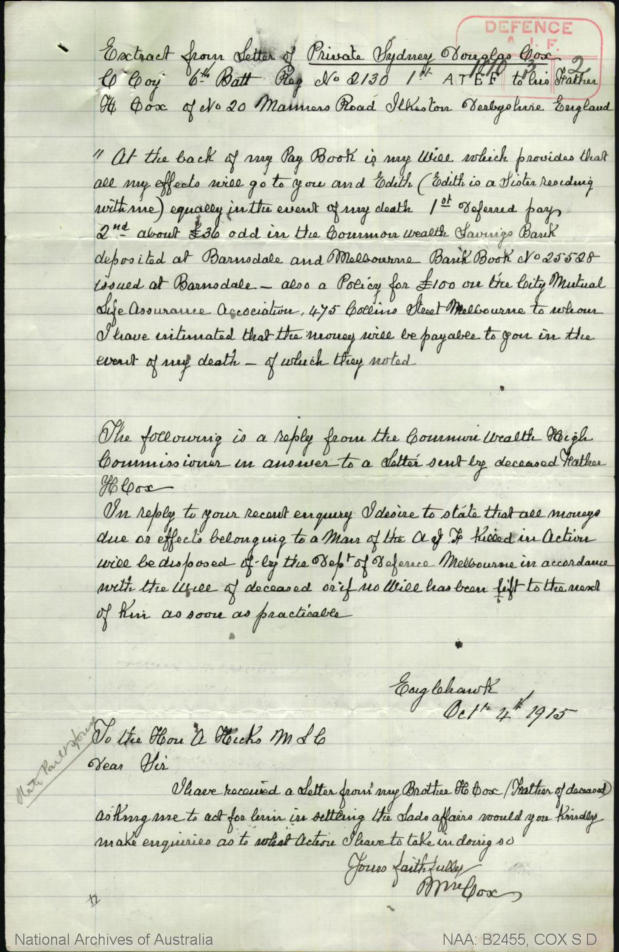 DEFENCE
A. I. F.
Extract from Letter of Private Sydney Douglas Cox
C Coy 6th Batt Reg No 2130 1st A I E F to his Father
H Cox of No 20 Manners Road Ilkeston Derbyshire England
" At the back of my Pay Book is my Will which provides that
all my effects will go to you and Edith (Edith is a Sister residing
with me) equally in the event of my death 1st Deferred pay,
2nd about £36 odd in the Common Wealth Savings Bank
deposited at Barnsdale and Melbourne Bank Book No 25528
issued at Barnsdale – also a Policy for £100 on the City Mutual
Life Assurance Association, 475 Collins Street Melbourne to whom
I have intimated that the money will be payable to you in the
event of my death – of which they noted
The following is a reply from the Common Wealth High
Commissioner in answer to a Letter sent by deceased Father
H Cox
In reply to your recent enquiry I desire to state that all moneys
due or effects belonging to a Man of the A I F Killed in Action
will be disposed of by the Dept of Defence Melbourne in accordance
with the Will of deceased or if no Will has been left to the next
of Kin as soon as practicable
Eaglehawk
Oct 4th 1915
To the Hon A Hicks M L C
Dear Sir
I have received a Letter from my Brother H Cox (Father of deceased)
asking me to act for him in settling the Lads affairs would you Kindly
make enquiries as to what Action I have to take in doing so
Yours faithfully
Wm Cox
National Archives of Australia
NAA: B2455, COX S D